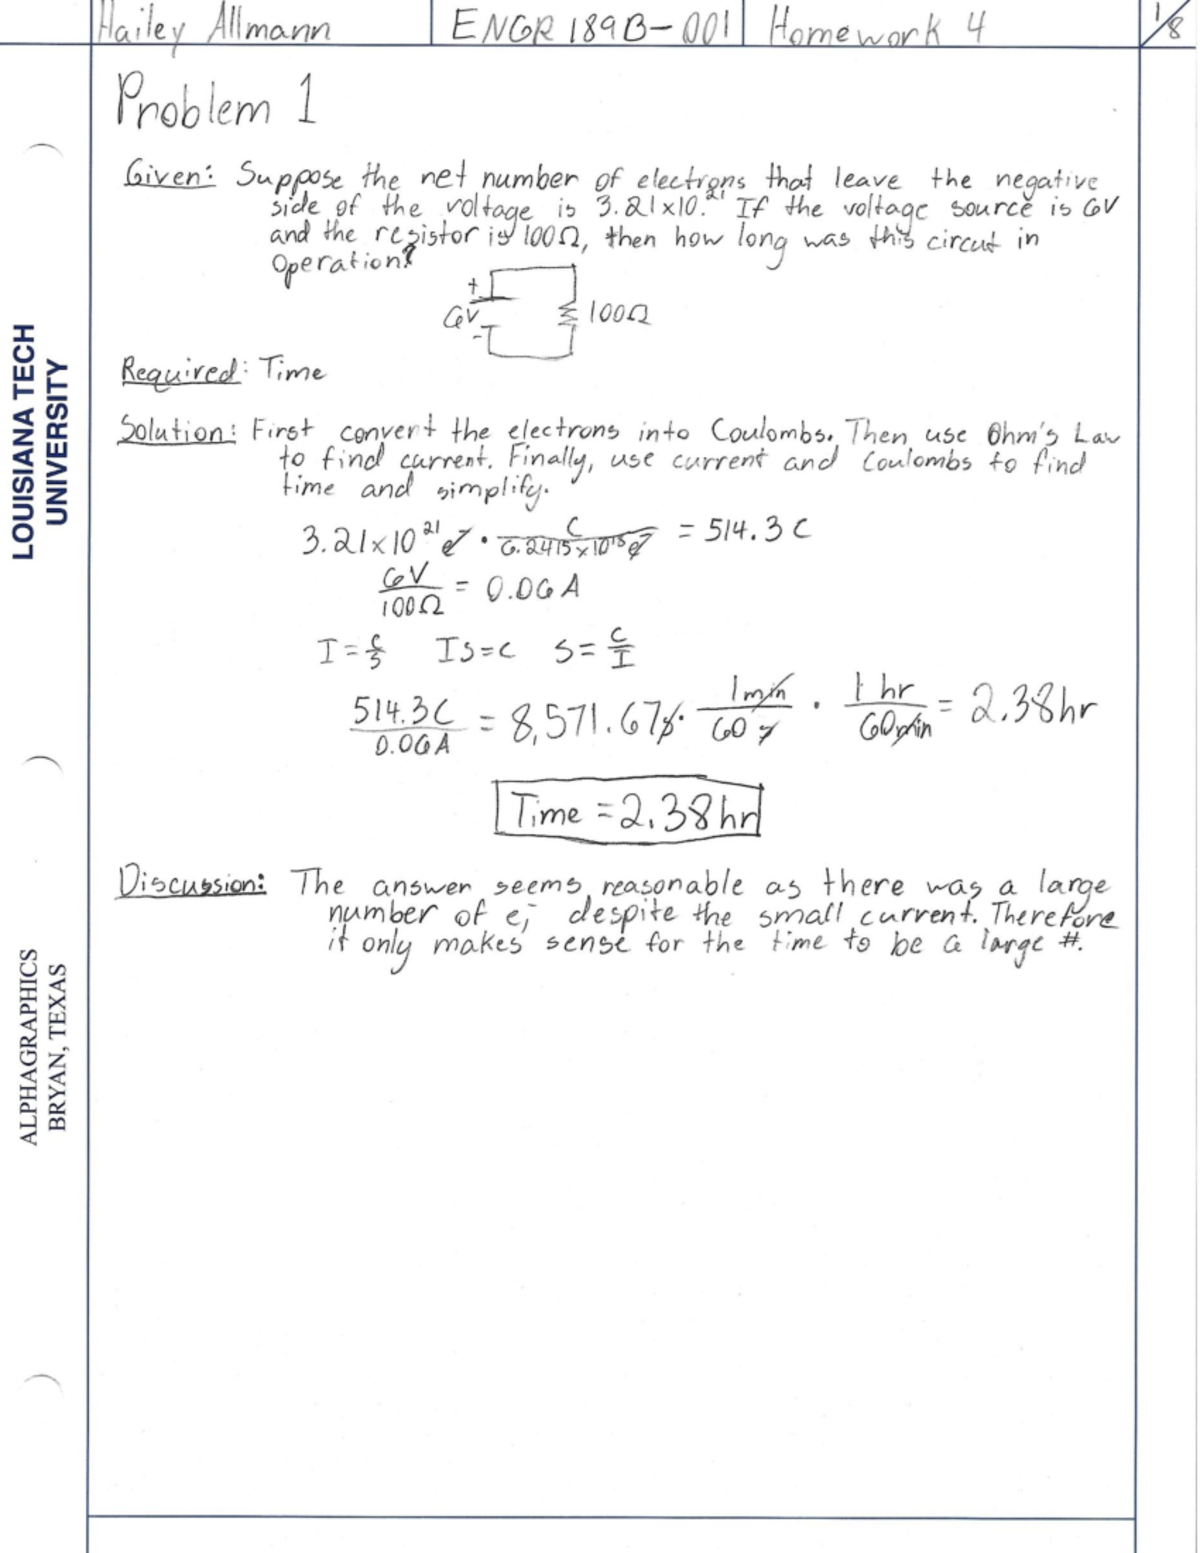 Hailey Allmann ENGR 189B-001 Homework 4 1/8
Problem 1
Given: Suppose the net number of electrons that leave the negative
side of the voltage is 3.21x10.²¹ If the voltage source is 6V
and the resistor is 100Ω, then how long was this circut in
Operation?
+
6V
-
100Ω
Required: Time
Solution: First convert the electrons into Coulombs. Then use Ohm's Law
to find current. Finally, use current and Coulombs to find
time and simplify.
3.21x10²¹ e⁻ · C / 6.2415x10¹⁸ e⁻ = 514.3 C
6V / 100Ω = 0.06A
I = C/S IS=C S = C/I
514.3C / 0.06A = 8,571.67s · 1min / 60s · 1hr / 60min = 2.38hr
Time = 2.38hr
Discussion: The answer seems reasonable as there was a large
number of e⁻, despite the small current. Therefore
it only makes sense for the time to be a large #.
LOUISIANA TECH
UNIVERSITY
ALPHAGRAPHICS
BRYAN, TEXAS